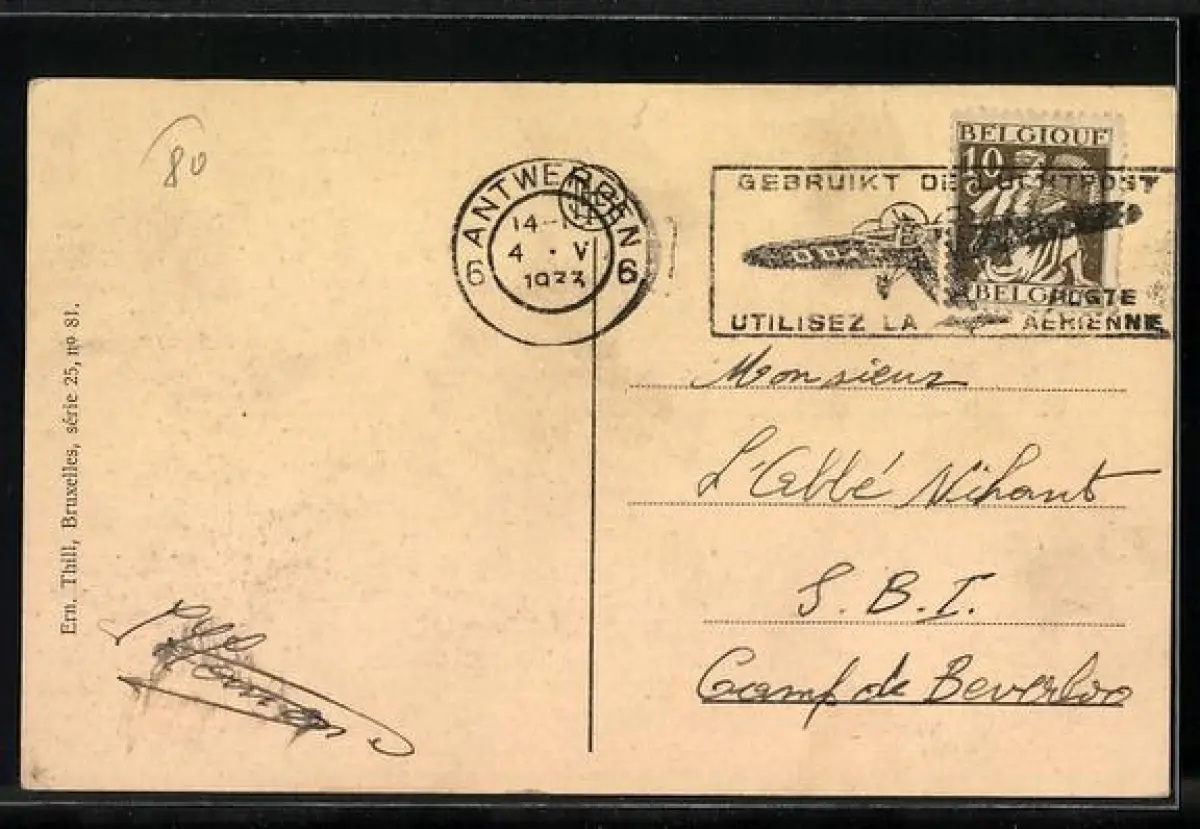 80
ANTWERPEN
14-1
4 · V
1933
6 6
GEBRUIKT DE LUCHTPOST
UTILISEZ LA POSTE AÉRIENNE
BELGIQUE
10
BELGIE
Monsieur
L'Abbé Nihant
S. B. I.
Camp de Beverloo
Ern. Thill, Bruxelles, série 25, nº 81.